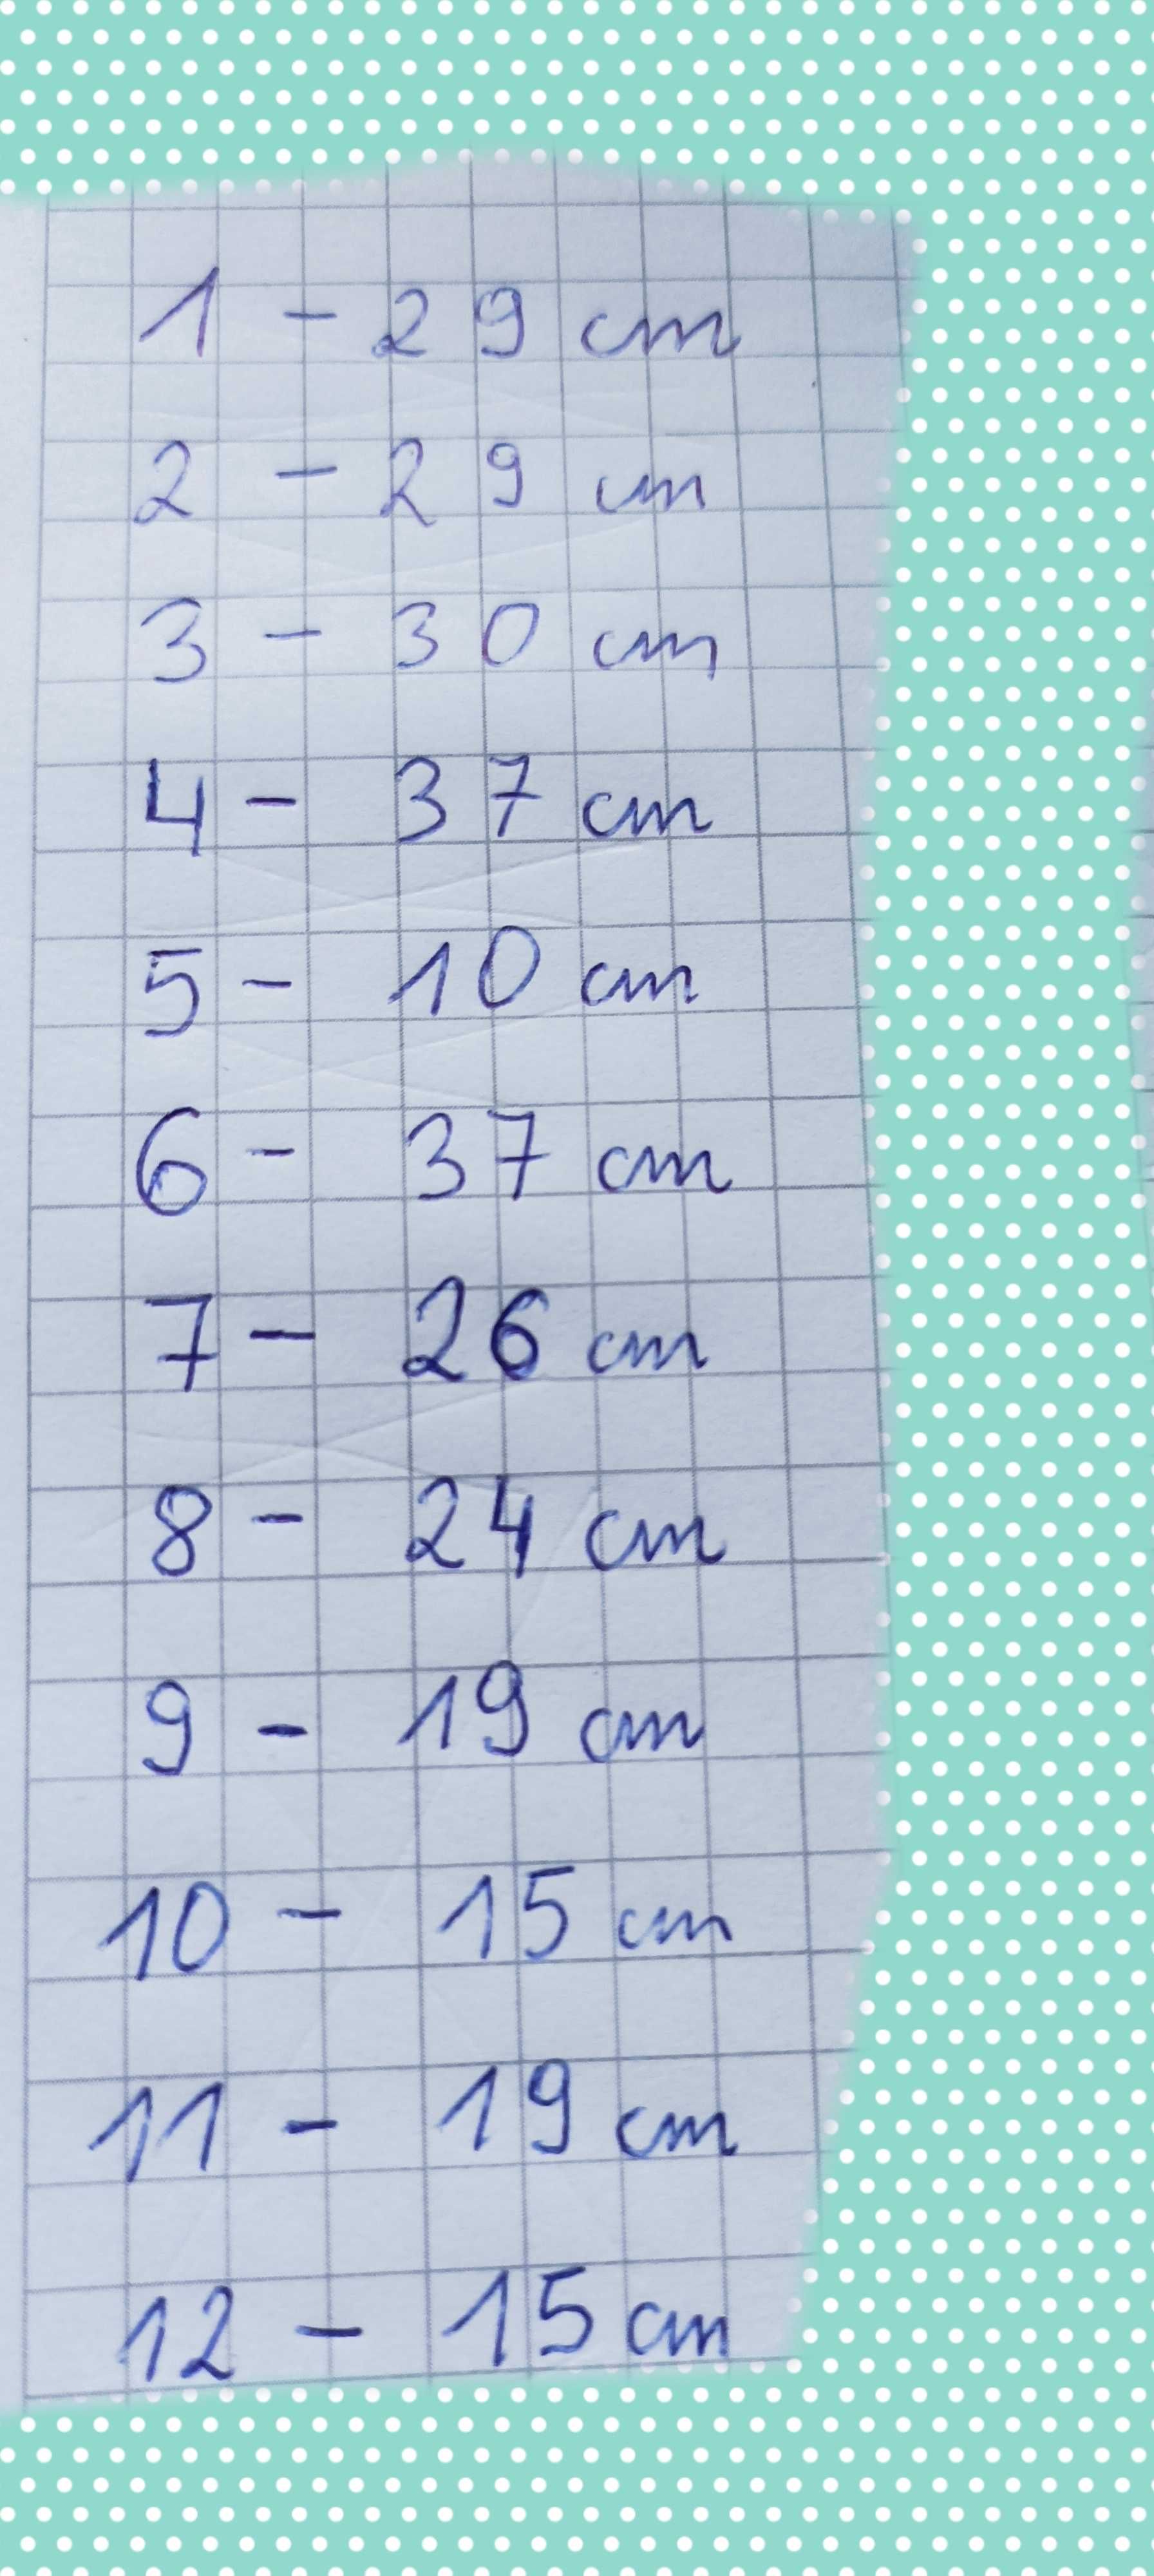 1 - 29 cm
2 - 29 cm
3 - 30 cm
4 - 37 cm
5 - 10 cm
6 - 37 cm
7 - 26 cm
8 - 24 cm
9 - 19 cm
10 - 15 cm
11 - 19 cm
12 - 15 cm